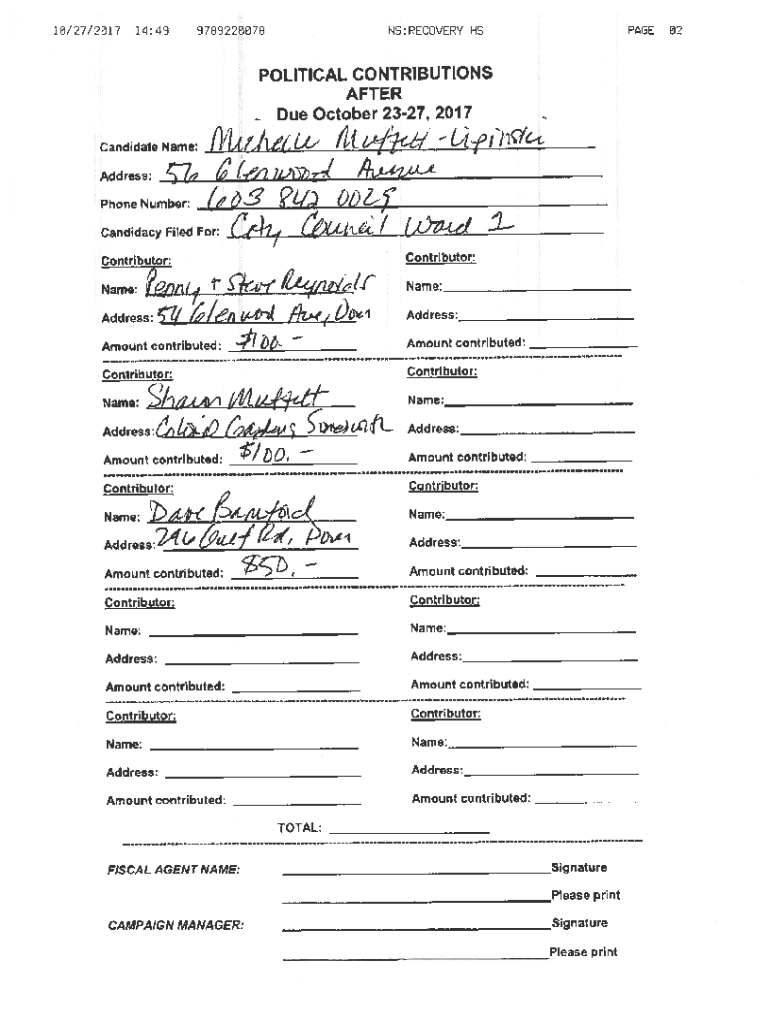 10/27/2017 14:49 9789228078 NS:RECOVERY HS PAGE 02
POLITICAL CONTRIBUTIONS
AFTER
Due October 23-27, 2017
Candidate Name: Michelle Muffett-Lipinski
Address: 56 Glenwood Avenue
Phone Number: 603 842 0029
Candidacy Filed For: City Council Ward 1
Contributor: Contributor:
Name: Penny + Steve Reynolds Name:
Address: 54 Glenwood Ave, Dover Address:
Amount contributed: $100.- Amount contributed:
Contributor: Contributor:
Name: Sharon Muffett Name:
Address: Colonial Gardens Somersworth Address:
Amount contributed: $100.- Amount contributed:
Contributor: Contributor:
Name: Dave Bamford Name:
Address: 296 Gulf Rd, Dover Address:
Amount contributed: $50.- Amount contributed:
Contributor: Contributor:
Name: Name:
Address: Address:
Amount contributed: Amount contributed:
Contributor: Contributor:
Name: Name:
Address: Address:
Amount contributed: Amount contributed:
TOTAL:
FISCAL AGENT NAME: Signature
Please print
CAMPAIGN MANAGER: Signature
Please print